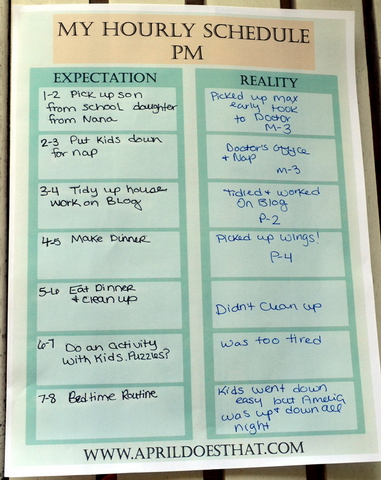 MY HOURLY SCHEDULE
PM
EXPECTATION
REALITY
1-2 Pick up son
from school daughter
from Nana
Picked up max
early took
to Doctor
M-3
2-3 Put Kids down
for nap
Doctor's Office
& Nap
M-3
3-4 Tidy up house
work on Blog
Tidied & worked
On Blog
P-2
4-5 Make Dinner
Picked up wings!
P-4
5-6 Eat Dinner
& clean up
Didn't Clean up
6-7 Do an activity
with Kids. Puzzles?
was too tired
7-8 Bedtime Routine
Kids went down
easy but Amelia
was up & down all
night
WWW.APRILDOESTHAT.COM